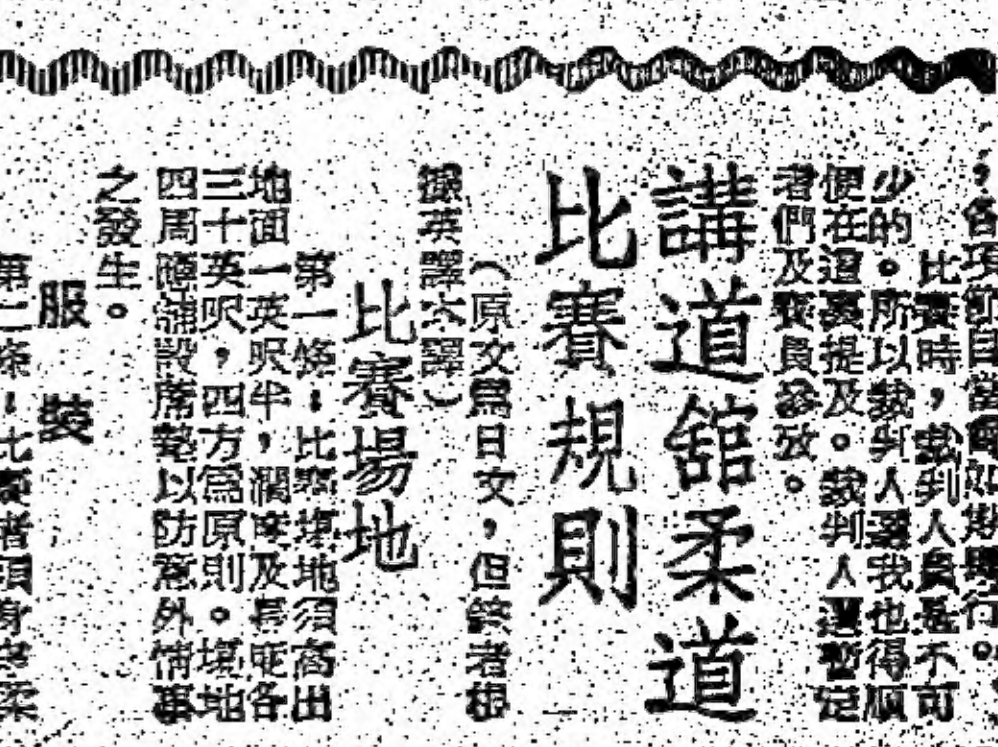 ，各項節目當可如期舉行。
比賽時，裁判人員是不可
少的。所以裁判人選我也得順
便在這裏提及。裁判人選暫定
者們及委員參攷。
講道舘柔道
比賽規則
（原文爲日文，但繇者根
據英譯本譯）
比賽場地
第一條：比賽塲地須高出
地面一英呎半，濶度及長度各
三十英呎，四方爲原則。塲地
四周應舖設蓆墊以防意外情事
之發生。
服裝
第二條：比賽者須身穿柔